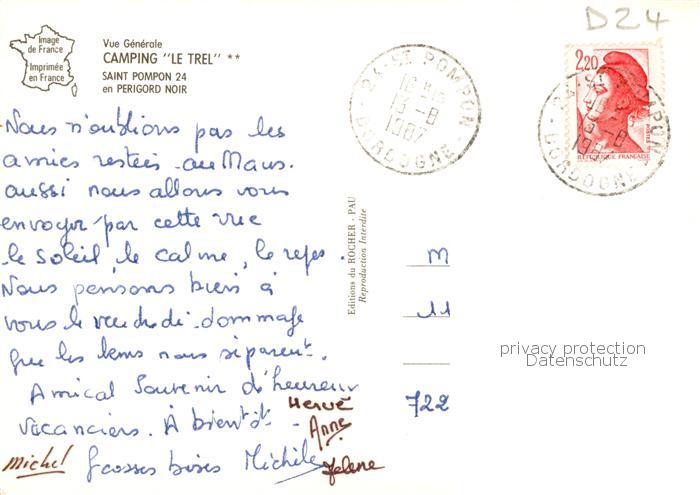 D24
Image
de France
Imprimée
en France
Vue Générale
CAMPING "LE TREL" **
SAINT POMPON 24
en PERIGORD NOIR
24-ST POMPON
13-8
1987
DORDOGNE
2,20
POSTES
REPUBLIQUE FRANÇAISE
Nous n'oublions pas les
amies restées au Mans.
aussi nous allons vous
envoyer par cette vue
le soleil, le calme, le repos.
Nous pensons bien à
vous le vendredi. dommage
que les kms nous séparent.
Amical Souvenir d'heureux
vacanciers. À bientôt -
Hervé
Anne
Michel Grosses bises Michèle
Helene
Editions du ROCHER - PAU
Reproduction Interdite
M
11
722
privacy protection
Datenschutz